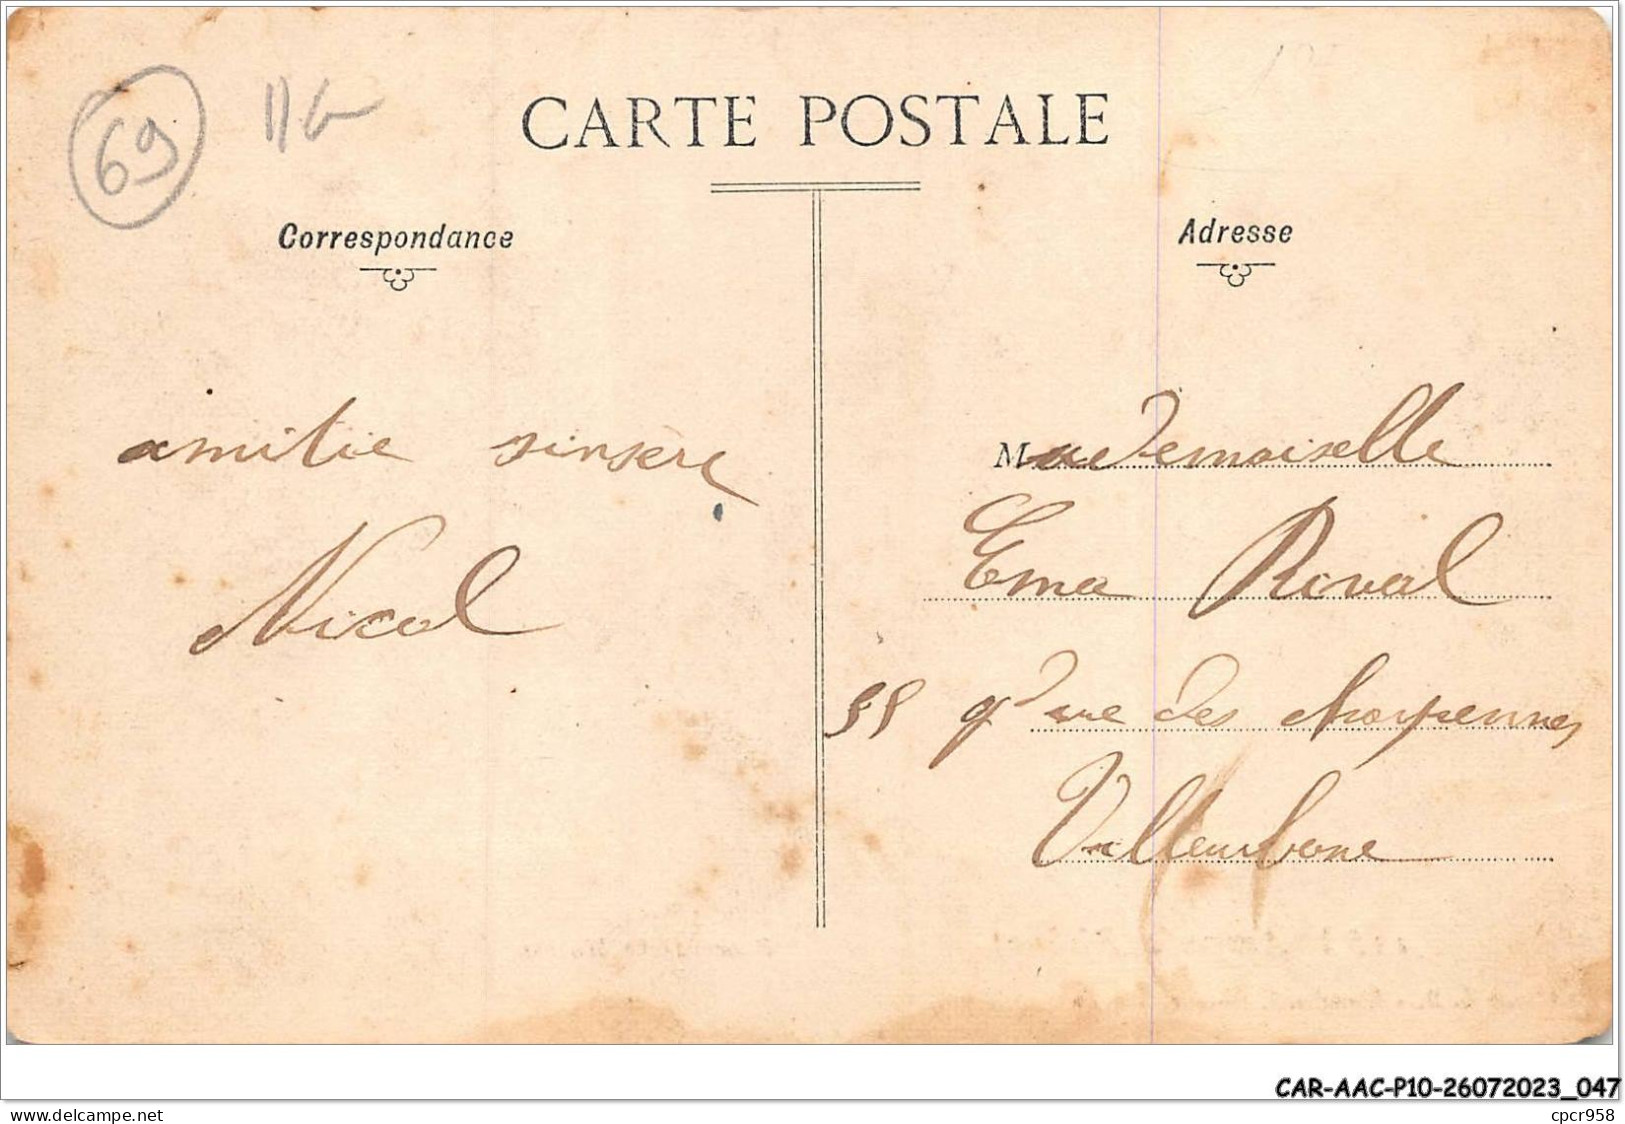 69
CARTE POSTALE
Correspondance
Adresse
amitie sinsère
Nicol
Mademoiselle
Ema Rival
55 gde rue des charpennes
Villeurbane
CAR-AAC-P10-26072023_047
www.delcampe.net
cpcr958